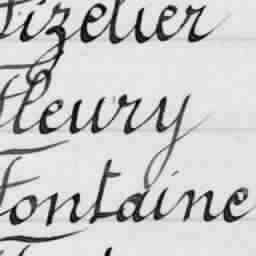 Fizelier
Fleury
Fontaine